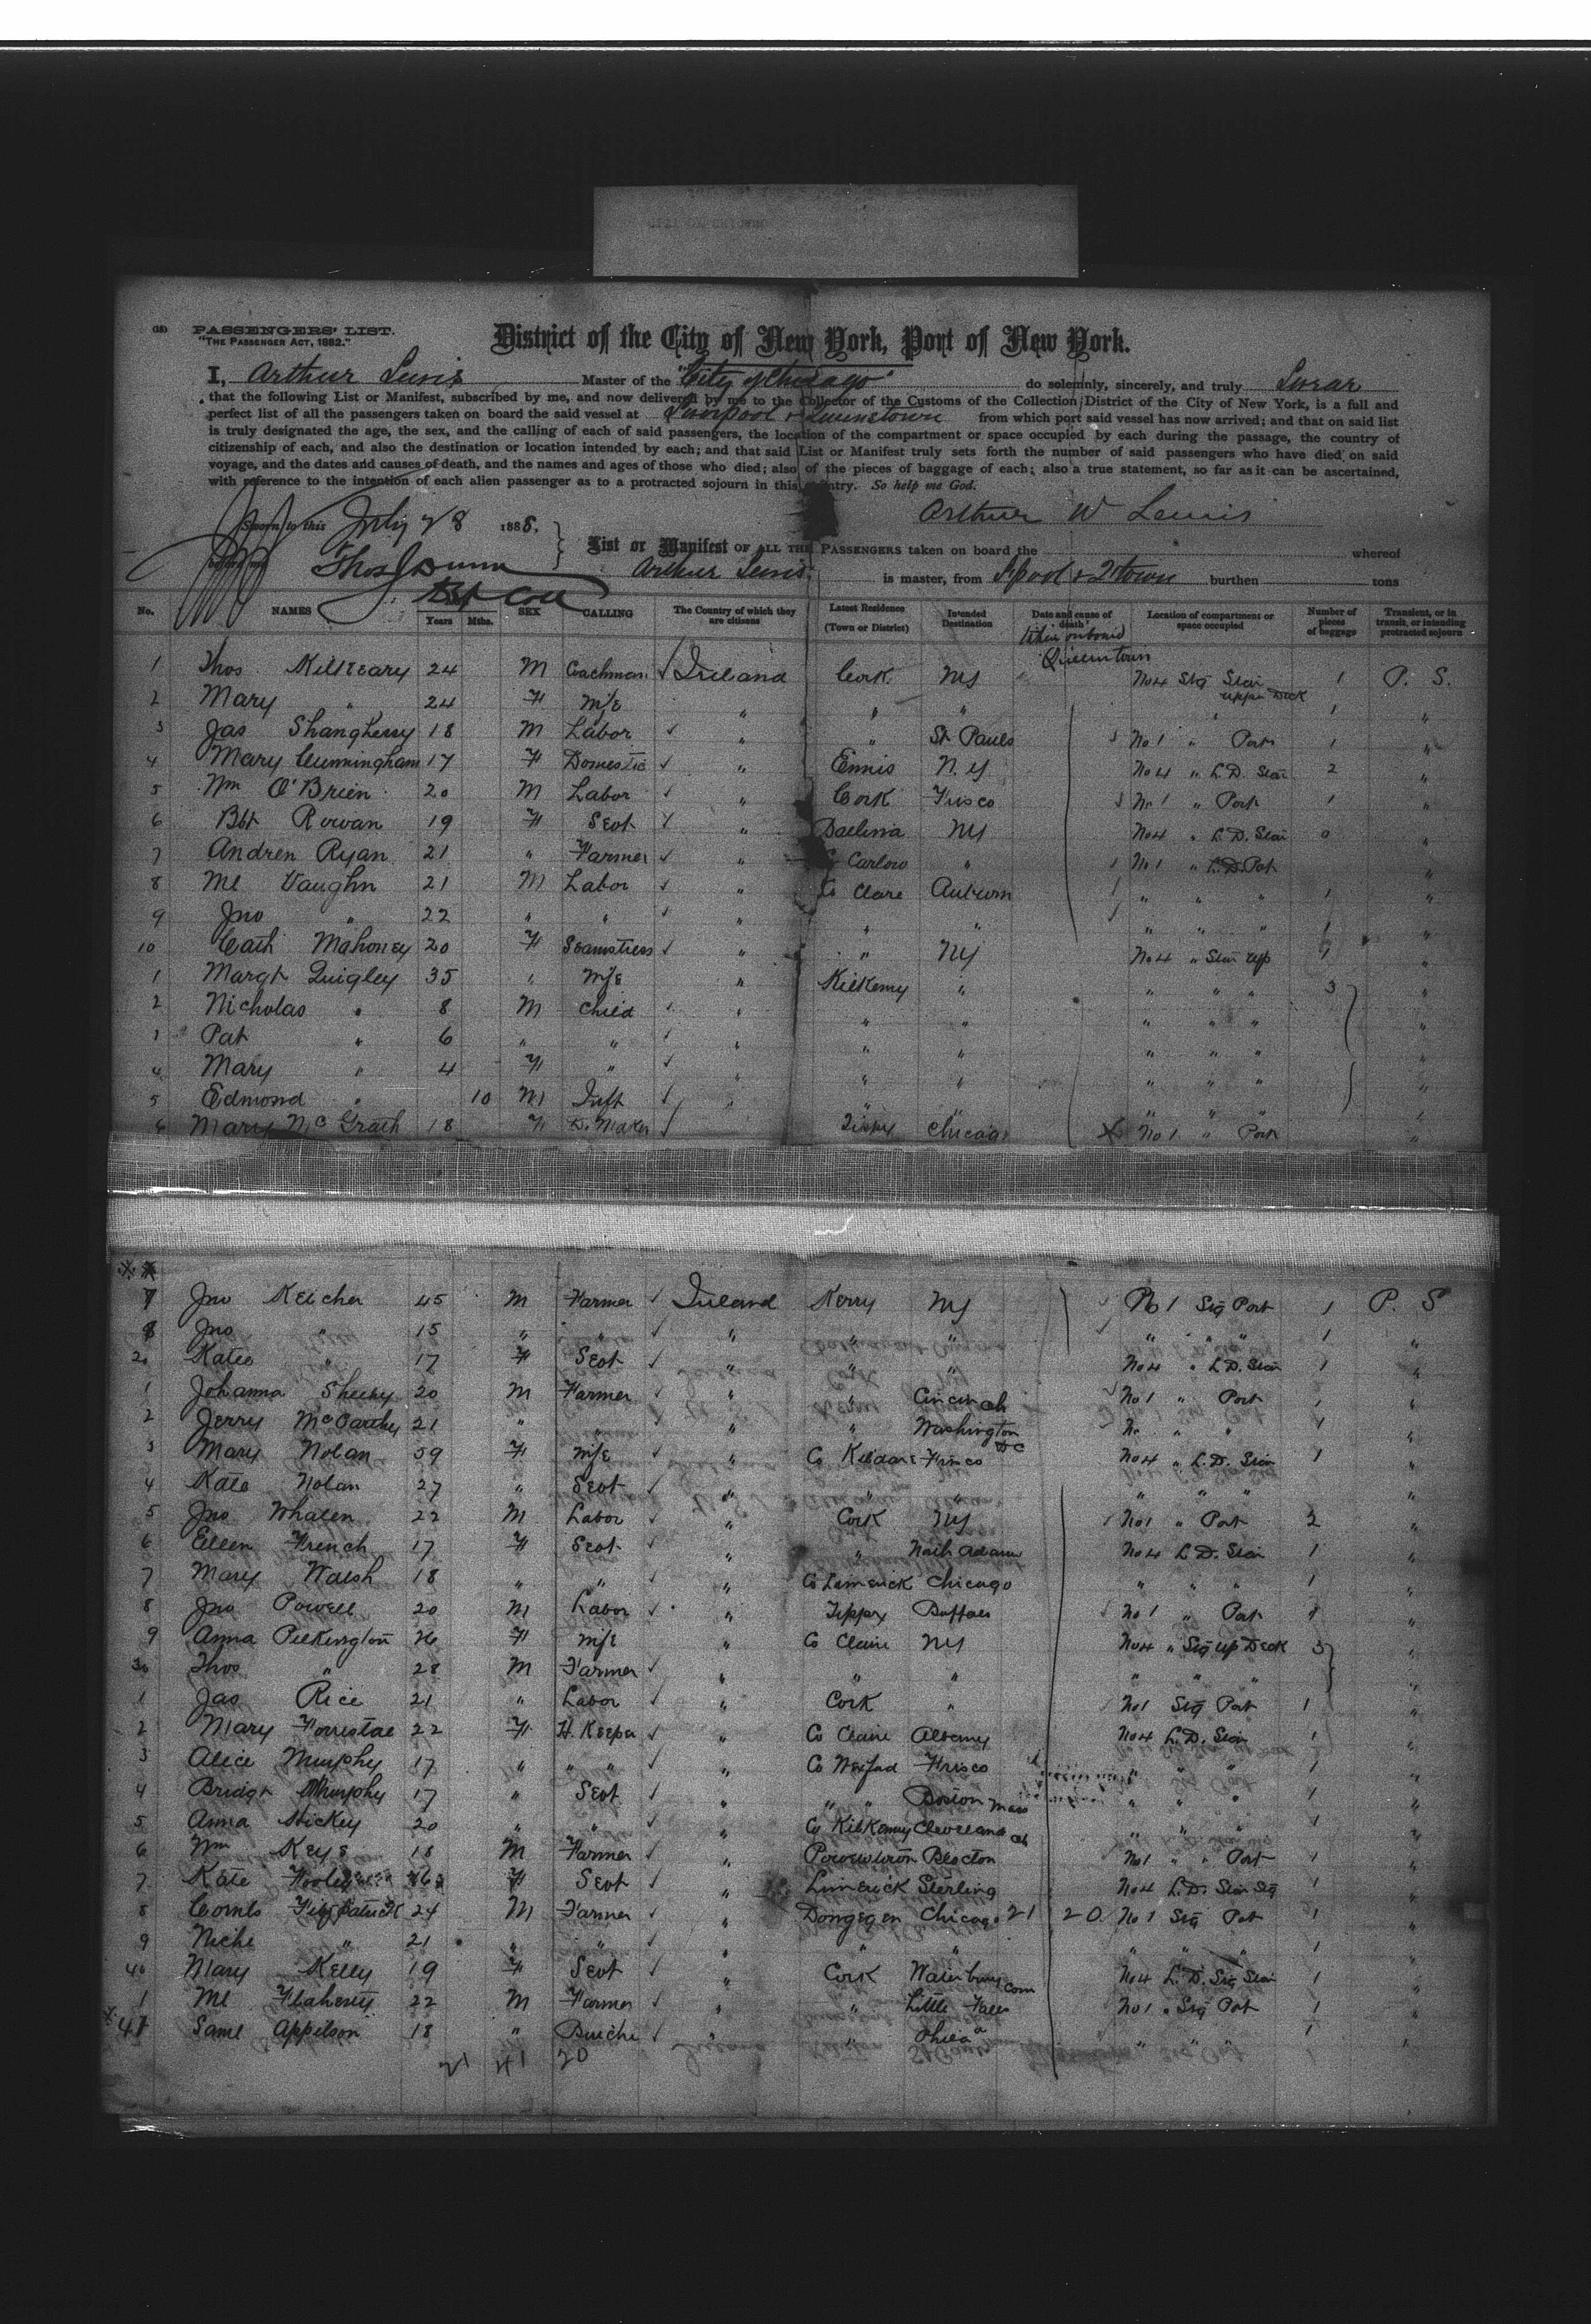 (18) PASSENGERS' LIST.
"THE PASSENGER ACT, 1882."
District of the City of New York, Port of New York.
I, Arthur Lewis Master of the "City of Chicago" do solemnly, sincerely, and truly Swear
that the following List or Manifest, subscribed by me, and now delivered by me to the Collector of the Customs of the Collection District of the City of New York, is a full and
perfect list of all the passengers taken on board the said vessel at Liverpool & Queenstown from which port said vessel has now arrived; and that on said list
is truly designated the age, the sex, and the calling of each of said passengers, the location of the compartment or space occupied by each during the passage, the country of
citizenship of each, and also the destination or location intended by each; and that said List or Manifest truly sets forth the number of said passengers who have died on said
voyage, and the dates and causes of death, and the names and ages of those who died; also of the pieces of baggage of each; also a true statement, so far as it can be ascertained,
with reference to the intention of each alien passenger as to a protracted sojourn in this country. So help me God.
Arthur W Lewis
Sworn to this July 28 1888.
before me Thos J Dunn
List or Manifest OF ALL THE PASSENGERS taken on board the whereof
Arthur Lewis is master, from L'pool & Q'town burthen tons
No. NAMES Years Mths. SEX CALLING The Country of which they are citizens Latest Residence (Town or District) Intended Destination Date and cause of death Location of compartment or space occupied Number of pieces of baggage Transient, or in transit, or intending protracted sojourn
taken onboard Queenstown
1 Thos Killeary 24 M Coachman Ireland Cork NY No4 Stg Star upper Deck 1 P. S.
2 Mary " 24 F W/E " " " " 1 "
3 Jas Shanghessy 18 M Labor " " St Pauls No 1 " Port 1 "
4 Mary Cunningham 17 F Domestic " Ennis N.Y No4 " L.D. Star 2 "
5 Wm O'Brien 20 M Labor " Cork Frisco No 1 " Port 1 "
6 Bbt Rowan 19 F Sevt " NY No4 " L.D. Star 0 "
7 Andren Ryan 21 " Farmer " Co Carlow " No 1 " L.D. Port "
8 Ml Vaughn 21 M Labor " Co Clare Auburn " " " 1 "
9 Jno " 22 " " " " " " " " 1 "
10 Cath Mahoney 20 F Seamstress " " NY No4 " Star up 1 "
1 Margt Quigley 35 " W/E " Kilkenny " " " " 3 "
2 Nicholas " 8 M Child " " " " " " "
3 Pat " 6 " " " " " " " " "
4 Mary " 4 F " " " " " " " "
5 Edmond " 10 M Inft " " " " " " "
6 Mary McGrath 18 F D. Maker Tippy Chicago No 1 " Port "
7 Jno Kelcher 45 M Farmer Ireland Kerry NY No 1 Stg Port 1 P. S
8 Jno " 15 " " " " " " " " 1 "
20 Katie " 17 F Sevt " " " No4 " L.D. Star 1 "
1 Johanna Sheehy 20 M Farmer " " Cincin Oh No 1 " Port 1 "
2 Jerry McCarthy 21 " " " " Washington DC No " " 1 "
3 Mary Nolan 59 F W/E " Co Kildare Frisco No4 " L.D. Star 1 "
4 Kate Nolan 27 " Sevt " " " " " " "
5 Jno Whalen 22 M Labor " Cork NY No1 " Port 2 "
6 Ellen French 17 F Sevt " " North Adams No4 L.D. Star 1 "
7 Mary Walsh 18 " " " Co Limerick Chicago " " " 1 "
8 Jno Powell 20 M Labor " Tippy Buffalo No 1 " Port 1 "
9 Anna Pilkington 26 F W/E " Co Claire NY No4 " Stg up Deck 3 "
30 Thos " 28 M Farmer " " " " " " "
1 Jas Rice 21 " Labor " Cork " No1 Stg Port 1 "
2 Mary Forrestal 22 F H. Keeper " Co Claire Albany No4 L.D. Star 1 "
3 Alice Murphy 17 " " " " Co Wexford Frisco " " " 1 "
4 Bridgt Murphy 17 " Sevt " " " Boston Mass " " " 1 "
5 Anna Hickey 20 " " " Co Kilkenny Cleveland Oh " " " 1 "
6 Wm Keys 18 M Farmer " Blocton No1 " " Port 1 "
7 Kate F Sevt " Limerick Sterling No4 L.D. Star Stg 1 "
8 Cornls Fitzpatrick 24 M Farmer " Chicago 21 20 No 1 Stg Port 1 "
9 Niche " 21 " " " " " " " " 1 "
40 Mary Kelly 19 F Sevt " Cork Waterbury Conn No4 L.D. Stg Star 1 "
1 Ml Flaherty 22 M Farmer " " Little Falls No1 " Stg Port 1 "
47 Saml Appelson 18 " " " Phila " " " 1 "
21 41 20